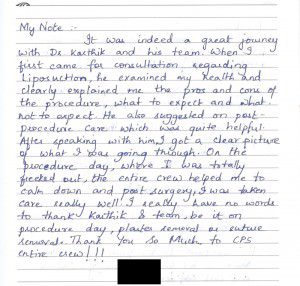 My Note :-
It was indeed a great journey
with Dr Karthik and his team. When I
first came for consultation regarding
Liposuction, he examined my health and
clearly explained me the pros and cons of
the procedure, what to expect and what
not to expect. He also suggested on post
procedure care which was quite helpful.
After speaking with him, I got a clear picture
of what I was going through. On the
procedure day, where I was totally
freaked out, the entire crew helped me to
calm down and post surgery, I was taken
care really well. I really have no words
to thank Karthik & team. be it on
procedure day, plaster removal or suture
removal. Thank You So Much to CPS
entire crew!!!